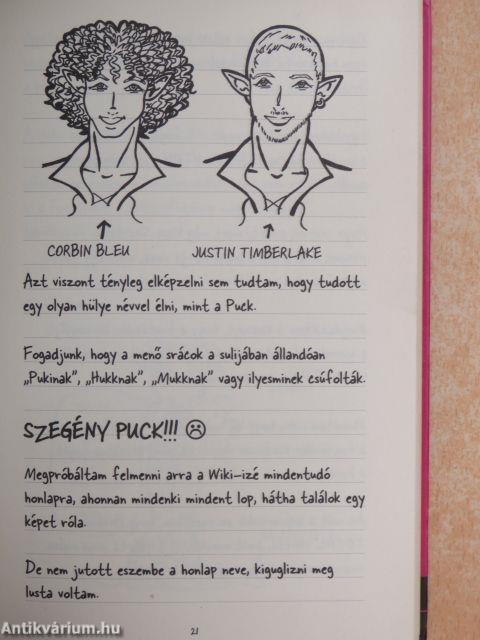 CORBIN BLEU
JUSTIN TIMBERLAKE
Azt viszont tényleg elképzelni sem tudtam, hogy tudott
egy olyan hülye névvel élni, mint a Puck.
Fogadjunk, hogy a menő srácok a sulijában állandóan
„Pukinak”, „Hukknak”, „Mukknak” vagy ilyesminek csúfolták.
SZEGÉNY PUCK!!! ☹
Megpróbáltam felmenni arra a Wiki-izé mindentudó
honlapra, ahonnan mindenki mindent lop, hátha találok egy
képet róla.
De nem jutott eszembe a honlap neve, kiguglizni meg
lusta voltam.
21
Antikvárium.hu